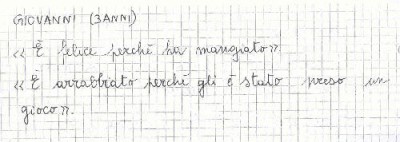 GIOVANNI (3ANNI)
« È felice perché ha mangiato »
« È arrabbiato perché gli è stato preso un
gioco ».